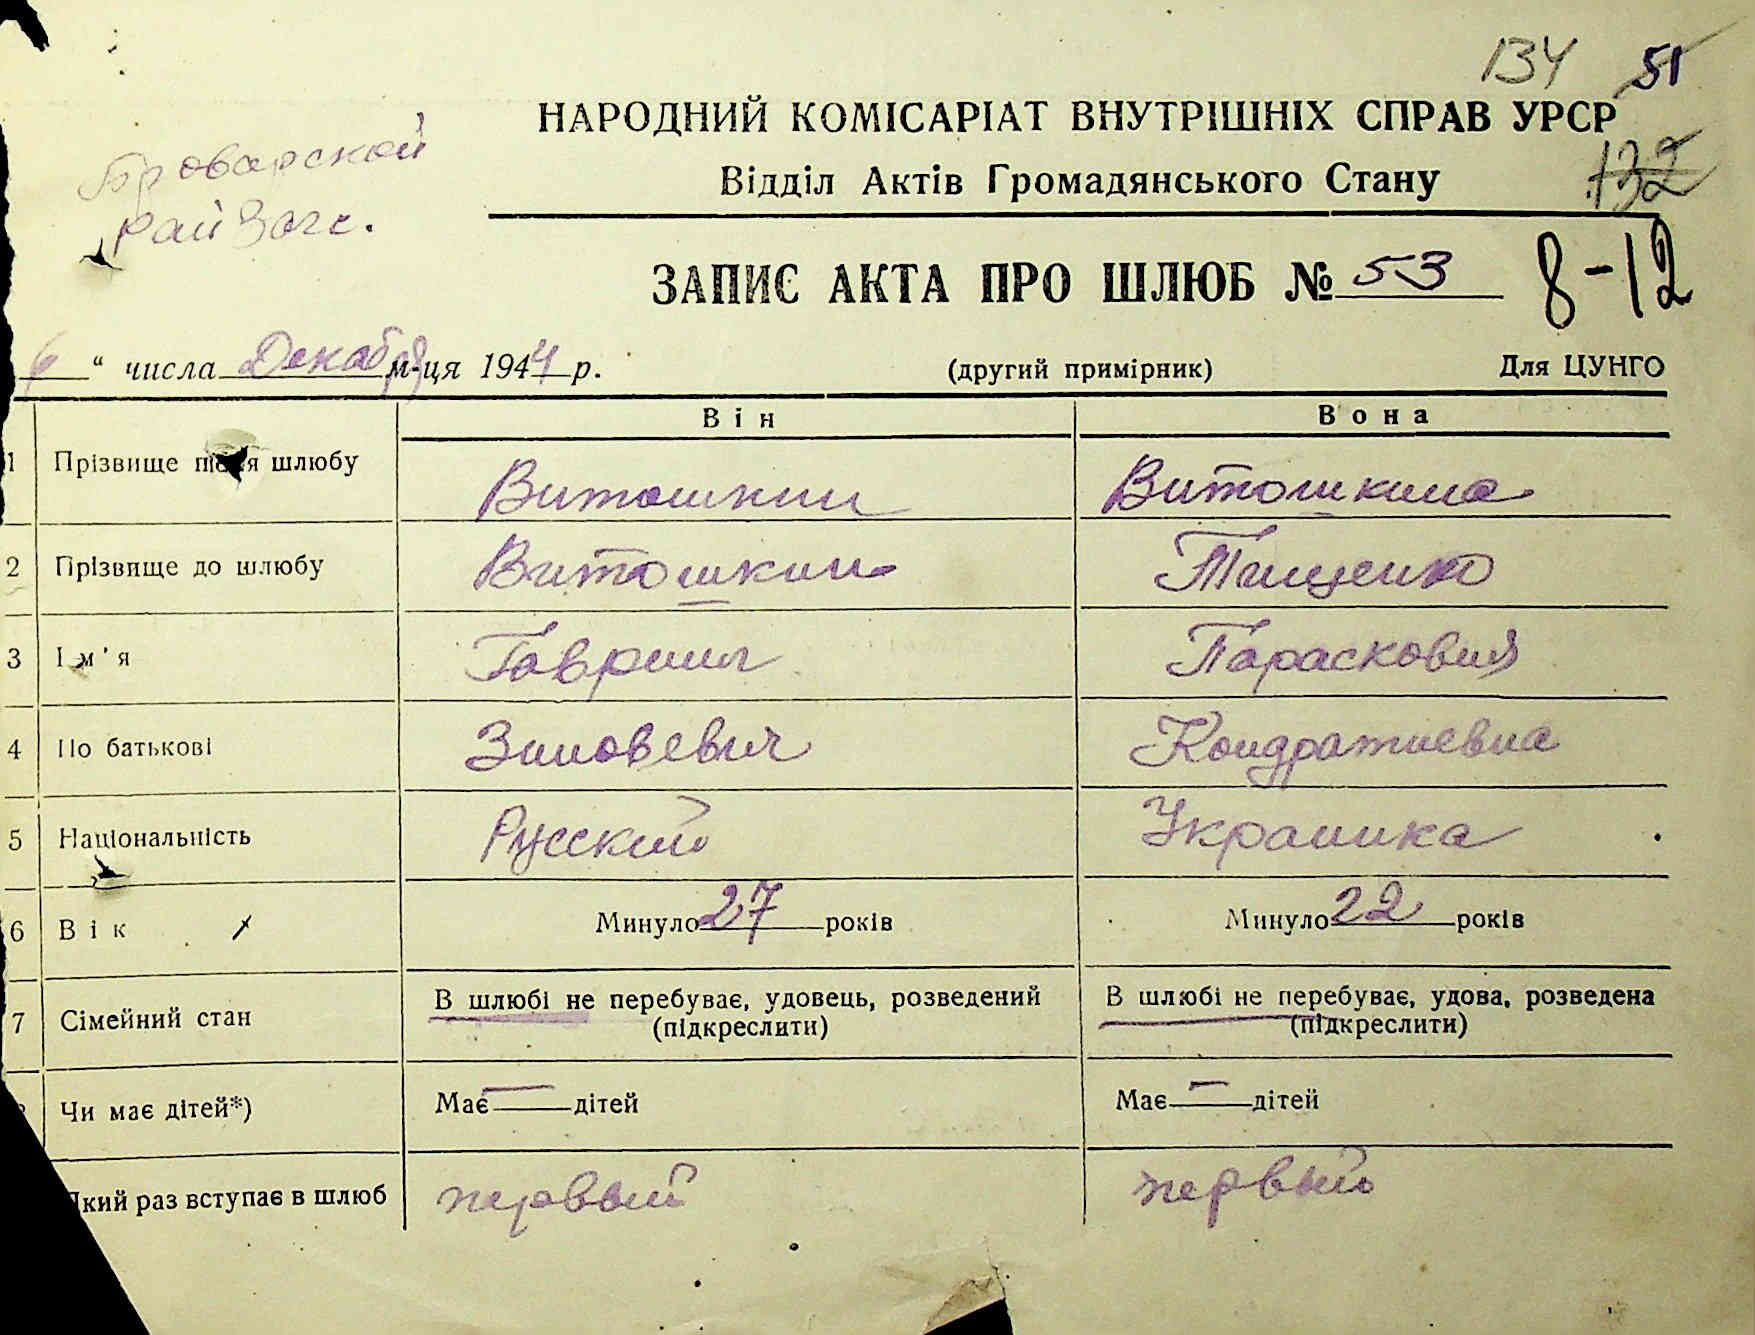 134 51
НАРОДНИЙ КОМІСАРІАТ ВНУТРІШНІХ СПРАВ УРСР
132
Броварской
рай Загс.
Відділ Актів Громадянського Стану
ЗАПИС АКТА ПРО ШЛЮБ № 53
8-12
6 " числа Декабря м-ця 1944 р.
(другий примірник)
Для ЦУНГО
Він Вона
1 Прізвище після шлюбу Витошкин Витошкина
2 Прізвище до шлюбу Витошкин Тищенко
3 Ім'я Гавриил Парасковия
4 По батькові Зиновевич Кондратиевна
5 Національність Русский Украинка
6 Вік Минуло 27 років Минуло 22 років
7 Сімейний стан В шлюбі не перебуває, удовець, розведений (підкреслити) В шлюбі не перебуває, удова, розведена (підкреслити)
Чи має дітей*) Має — дітей Має — дітей
Який раз вступає в шлюб первый первый